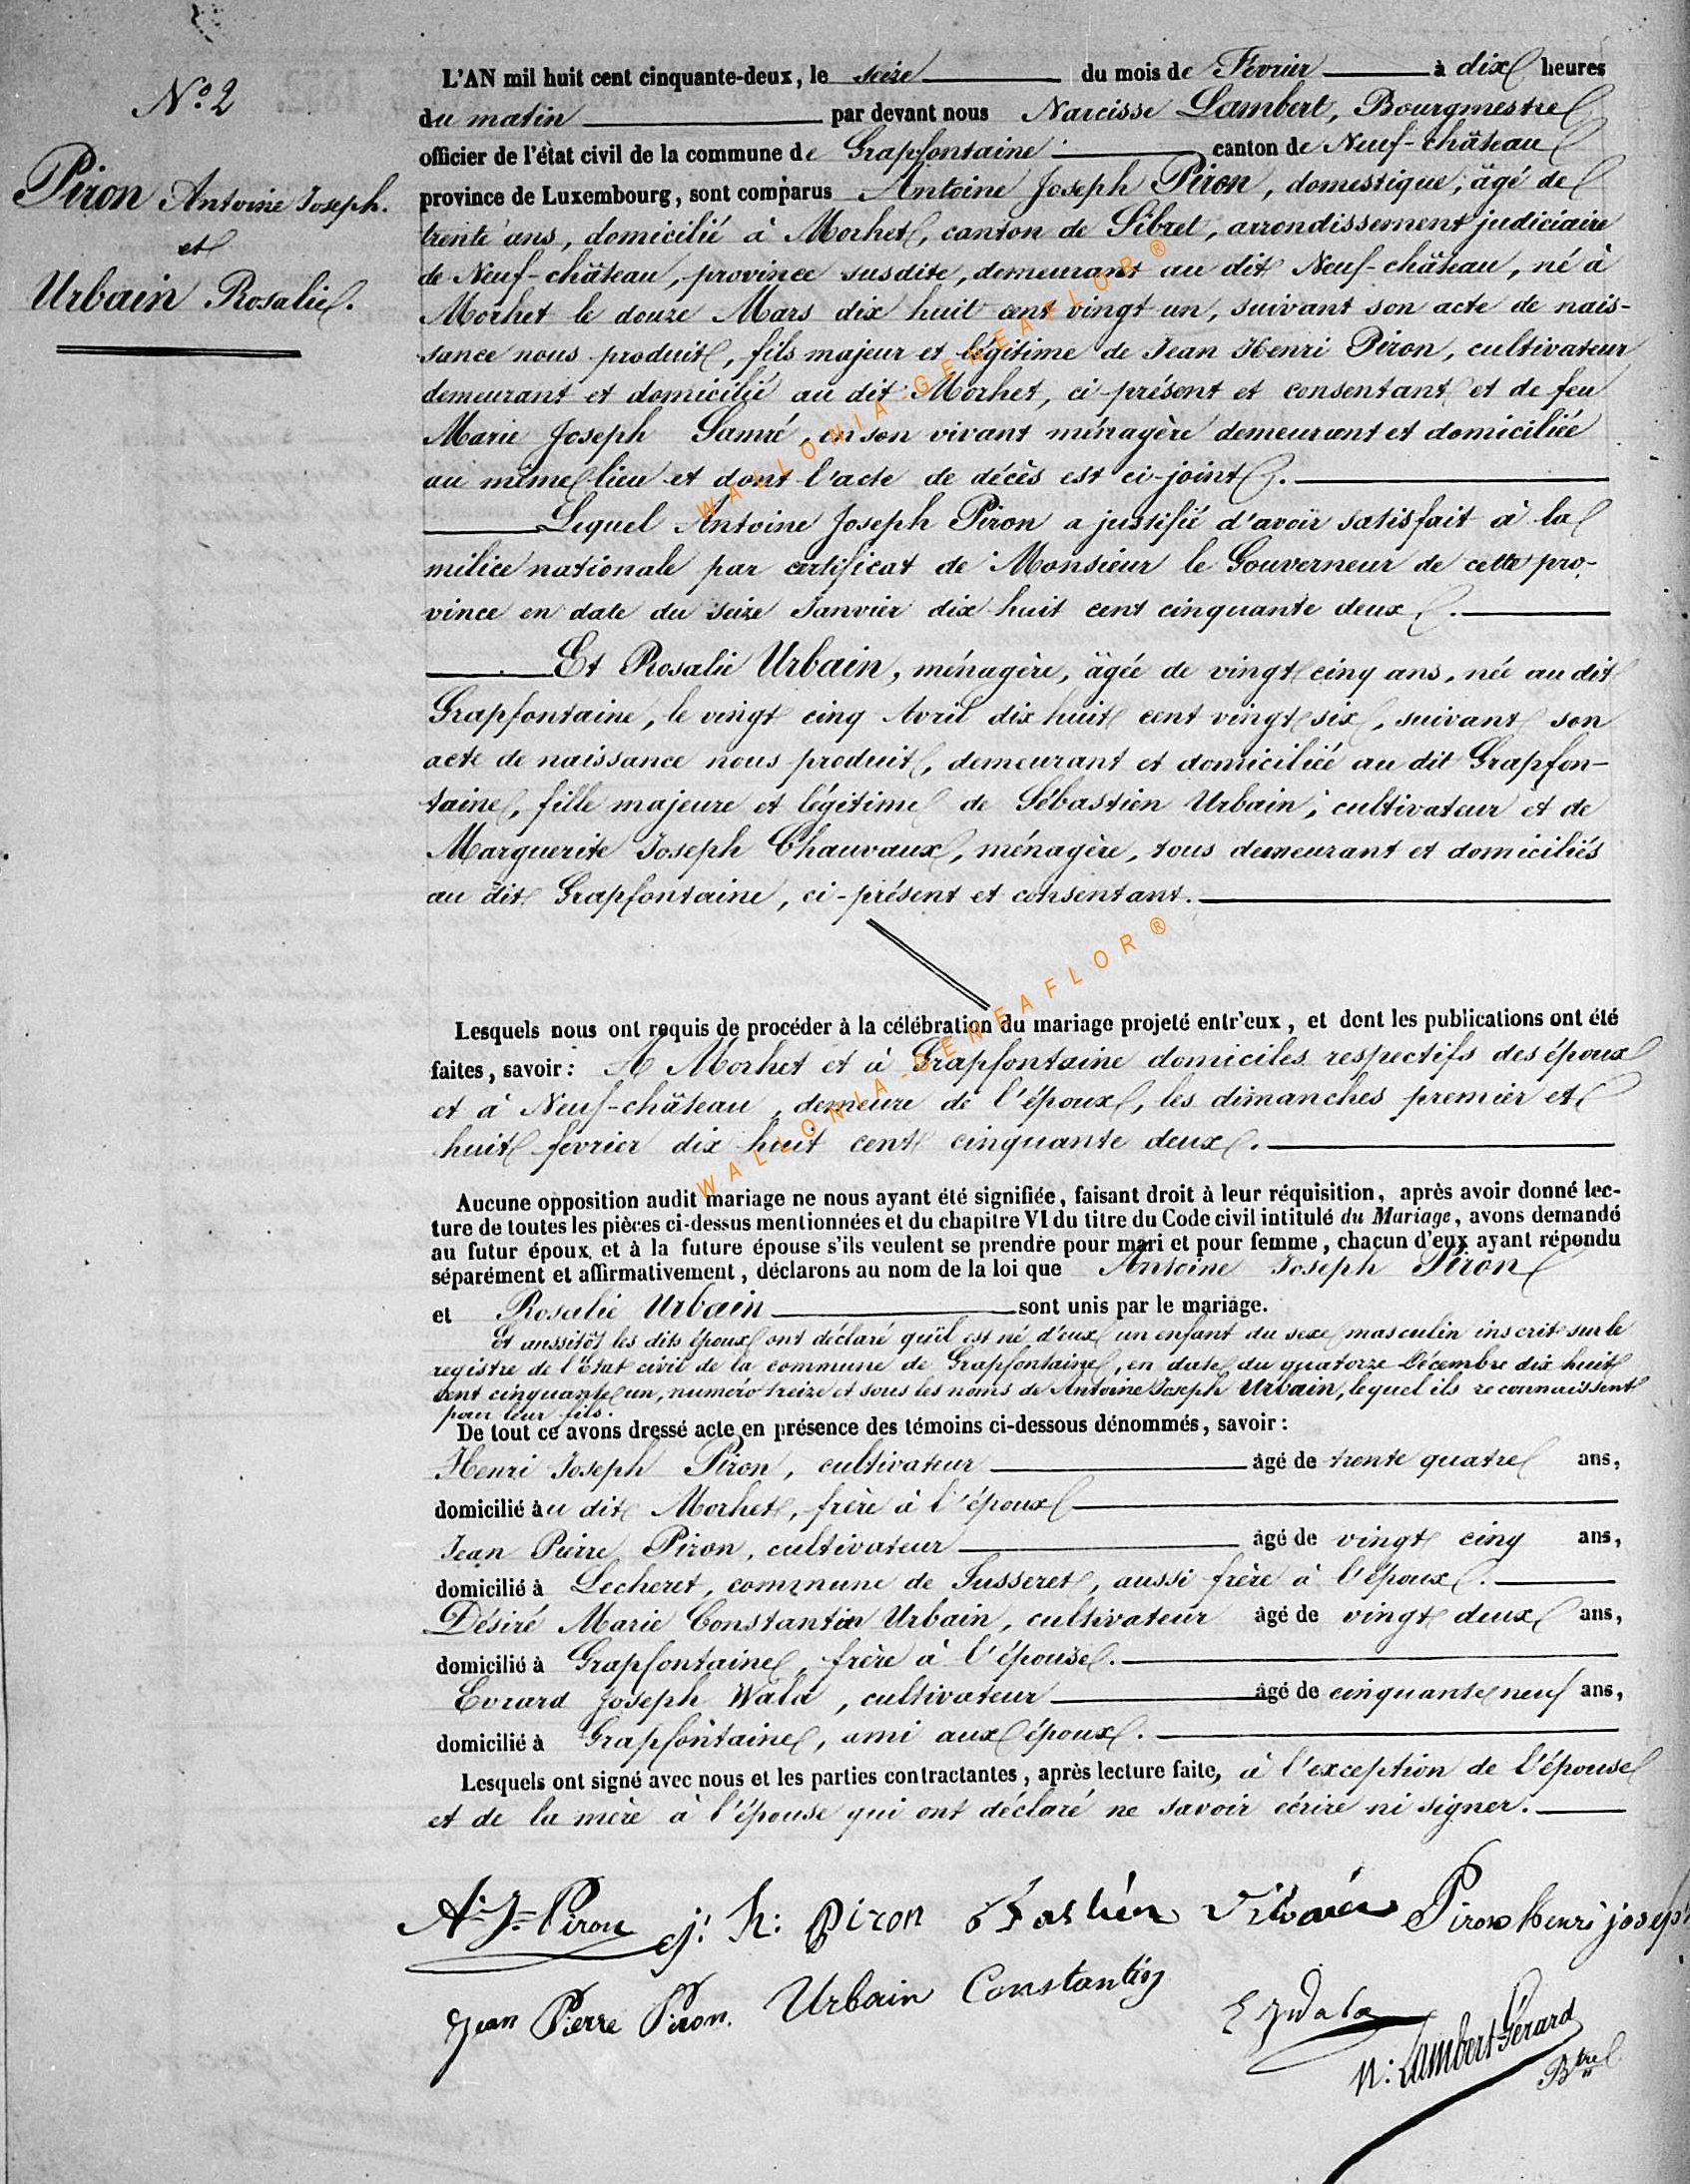 N.o 2
Piron Antoine Joseph.
et
Urbain Rosalie.
L'AN mil huit cent cinquante-deux, le seize du mois de Février à dix heures
du matin par devant nous Narcisse Lambert, Bourgmestre
officier de l'état civil de la commune de Grapfontaine canton de Neuf-château
province de Luxembourg, sont comparus Antoine Joseph Piron, domestique, âgé de
trente ans, domicilié à Morhet, canton de Sibret, arrondissement judiciaire
de Neuf-château, province susdite, demeurant au dit Neuf-château, né à
Morhet le douze Mars dix huit cent vingt un, suivant son acte de nais-
sance nous produit, fils majeur et légitime de Jean Henri Piron, cultivateur
demeurant et domicilié au dit Morhet, ci présent et consentant et de feu
Marie Joseph Lamré, en son vivant ménagère demeurant et domiciliée
au même lieu et dont l'acte de décès est ci-joint.
Lequel Antoine Joseph Piron a justifié d'avoir satisfait à la
milice nationale par certificat de Monsieur le Gouverneur de cette pro-
vince en date du seize Janvier dix huit cent cinquante deux.
Et Rosalie Urbain, ménagère, âgée de vingt cinq ans, née au dit
Grapfontaine, le vingt cinq Avril dix huit cent vingt six, suivant son
acte de naissance nous produit, demeurant et domiciliée au dit Grapfon-
taine, fille majeure et légitime de Sébastien Urbain, cultivateur et de
Marguerite Joseph Chauvaux, ménagère, tous demeurant et domiciliés
au dit Grapfontaine, ci-présent et consentant.
Lesquels nous ont requis de procéder à la célébration du mariage projeté entr'eux, et dont les publications ont été
faites, savoir: A Morhet et à Grapfontaine domiciles respectifs des époux
et à Neuf-château, demeure de l'époux, les dimanches premier et
huit fevrier dix huit cent cinquante deux.
Aucune opposition audit mariage ne nous ayant été signifiée, faisant droit à leur réquisition, après avoir donné lec-
ture de toutes les pièces ci-dessus mentionnées et du chapitre VI du titre du Code civil intitulé du Mariage, avons demandé
au futur époux et à la future épouse s'ils veulent se prendre pour mari et pour femme, chacun d'eux ayant répondu
séparément et affirmativement, déclarons au nom de la loi que Antoine Joseph Piron
et Rosalie Urbain sont unis par le mariage.
Et aussitôt les dits époux ont déclaré qu'il est né d'eux un enfant du sexe masculin inscrit sur le
registre de l'Etat civil de la commune de Grapfontaine, en date du quatorze Décembre dix huit
cent cinquante un, numéro treize et sous les noms de Antoine Joseph Urbain, lequel ils reconnaissent
pour leur fils.
De tout ce avons dressé acte en présence des témoins ci-dessous dénommés, savoir:
Henri Joseph Piron, cultivateur âgé de trente quatre ans,
domicilié au dit Morhet, frère à l'époux
Jean Pierre Piron, cultivateur âgé de vingt cinq ans,
domicilié à Lecheret, commune de Susseret, aussi frère à l'époux.
Désiré Marie Constantin Urbain, cultivateur âgé de vingt deux ans,
domicilié à Grapfontaine, frère à l'épouse.
Evrard Joseph Wala, cultivateur âgé de cinquante neuf ans,
domicilié à Grapfontaine, ami aux époux.
Lesquels ont signé avec nous et les parties contractantes, après lecture faite, à l'exception de l'épouse
et de la mère à l'épouse qui ont déclaré ne savoir écrire ni signer.
A. J. Piron j: h: Piron Piron Henri joseph
Jean Pierre Piron. Urbain Constantin
E J Wala
N: Lambert Gérard
Btre
WALLONIA-GENEAFLOR®
WALLONIA-GENEAFLOR®